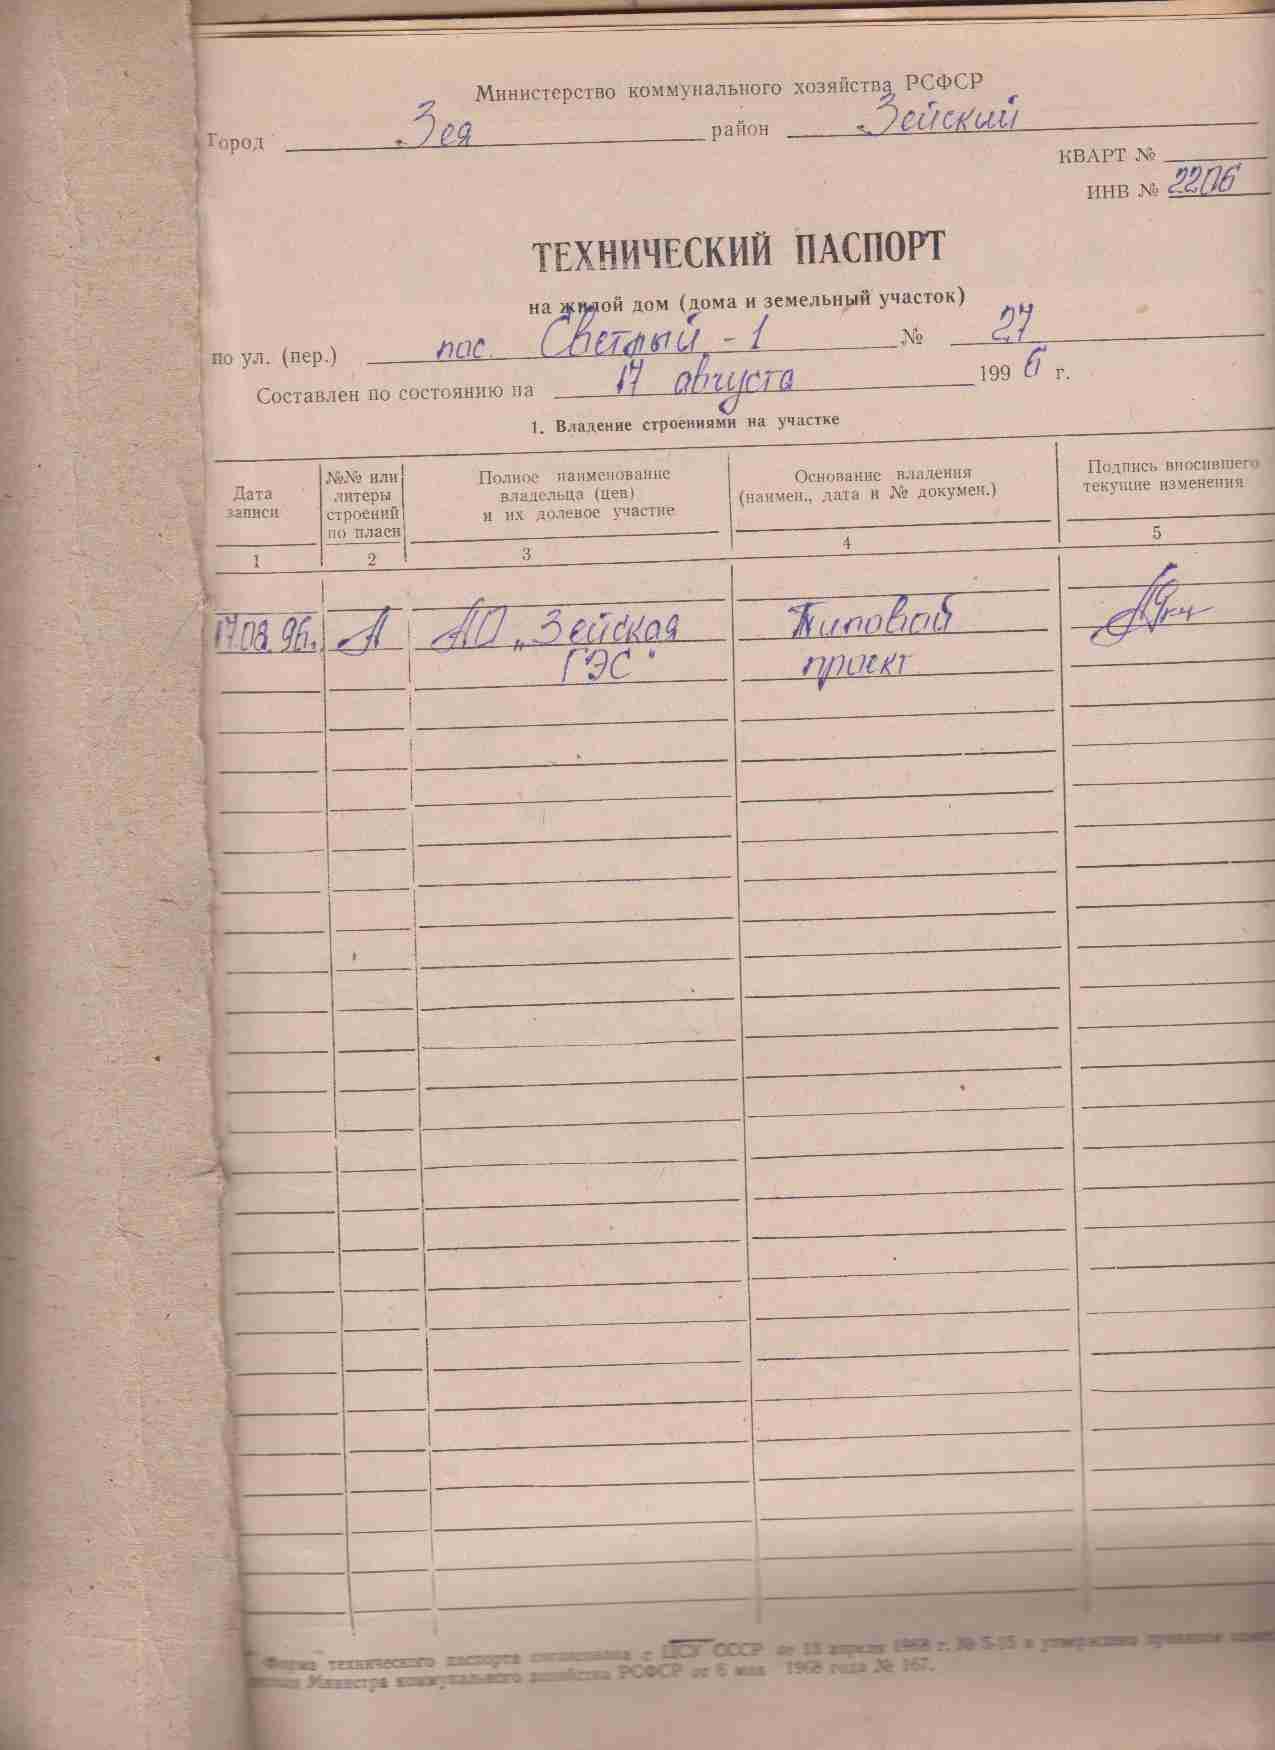 Министерство коммунального хозяйства РСФСР
Город Зея район Зейский
КВАРТ №
ИНВ № 2206
ТЕХНИЧЕСКИЙ ПАСПОРТ
на жилой дом (дома и земельный участок)
по ул. (пер.) пос. Светлый - 1 № 27
Составлен по состоянию на 17 августа 1996 г.
1. Владение строениями на участке
Дата записи
№№ или литеры строений по плаен
Полное наименование владельца (цев) и их долевое участие
Основание владения (наимен., дата и № докумен.)
Подпись вносившего текущие изменения
1 2 3 4 5
17.08.96г. А АО „Зейская Типовой
ГЭС" проект
Форма технического паспорта согласована с ЦСУ СССР от 13 апреля 1968 г. № 5-15 и утверждена приказом
Министра коммунального хозяйства РСФСР от 6 мая 1968 года № 167.